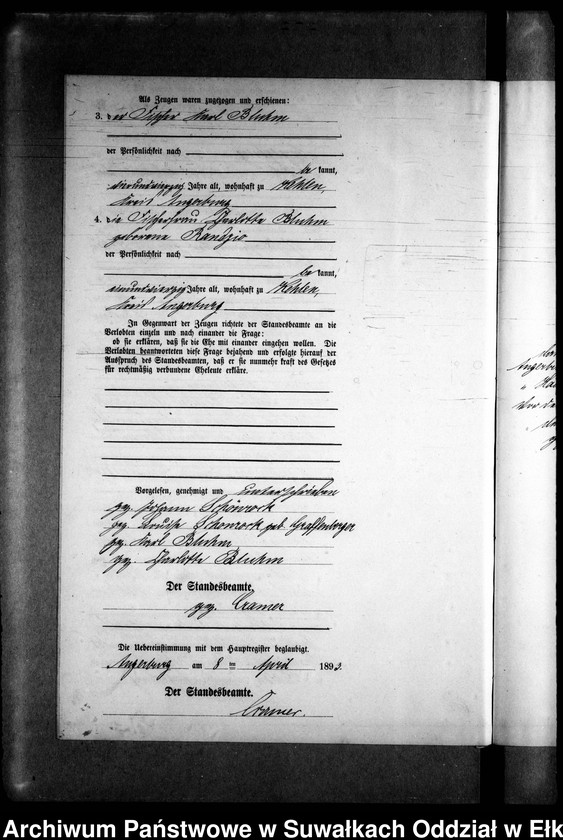 Als Zeugen waren zugezogen und erschienen:
3. der Fischer Karl Bluhm
der Persönlichkeit nach
be kannt,
vierundvierzig Jahre alt, wohnhaft zu Kehlen,
Kreis Angerburg
4. die Fischerfrau Charlotte Bluhm
geborene Randzio
der Persönlichkeit nach
be kannt,
einundvierzig Jahre alt, wohnhaft zu Kehlen,
Kreis Angerburg
In Gegenwart der Zeugen richtete der Standesbeamte an die
Verlobten einzeln und nach einander die Frage:
ob sie erklären, daß sie die Ehe mit einander eingehen wollen. Die
Verlobten beantworteten diese Frage bejahend und erfolgte hierauf der
Ausspruch des Standesbeamten, daß er sie nunmehr kraft des Gesetzes
für rechtmäßig verbundene Eheleute erkläre.
Vorgelesen, genehmigt und unterschrieben
gez. Johann Schönrock
gez. Louise Schönrock geb. Graffenberger
gez. Karl Bluhm
gez. Charlotte Bluhm
Der Standesbeamte.
gez. Cramer
Die Uebereinstimmung mit dem Hauptregister beglaubigt.
Angerburg am 8 ten April 1893.
Der Standesbeamte.
Cramer.
Archiwum Państwowe w Suwałkach Oddział w Ełk